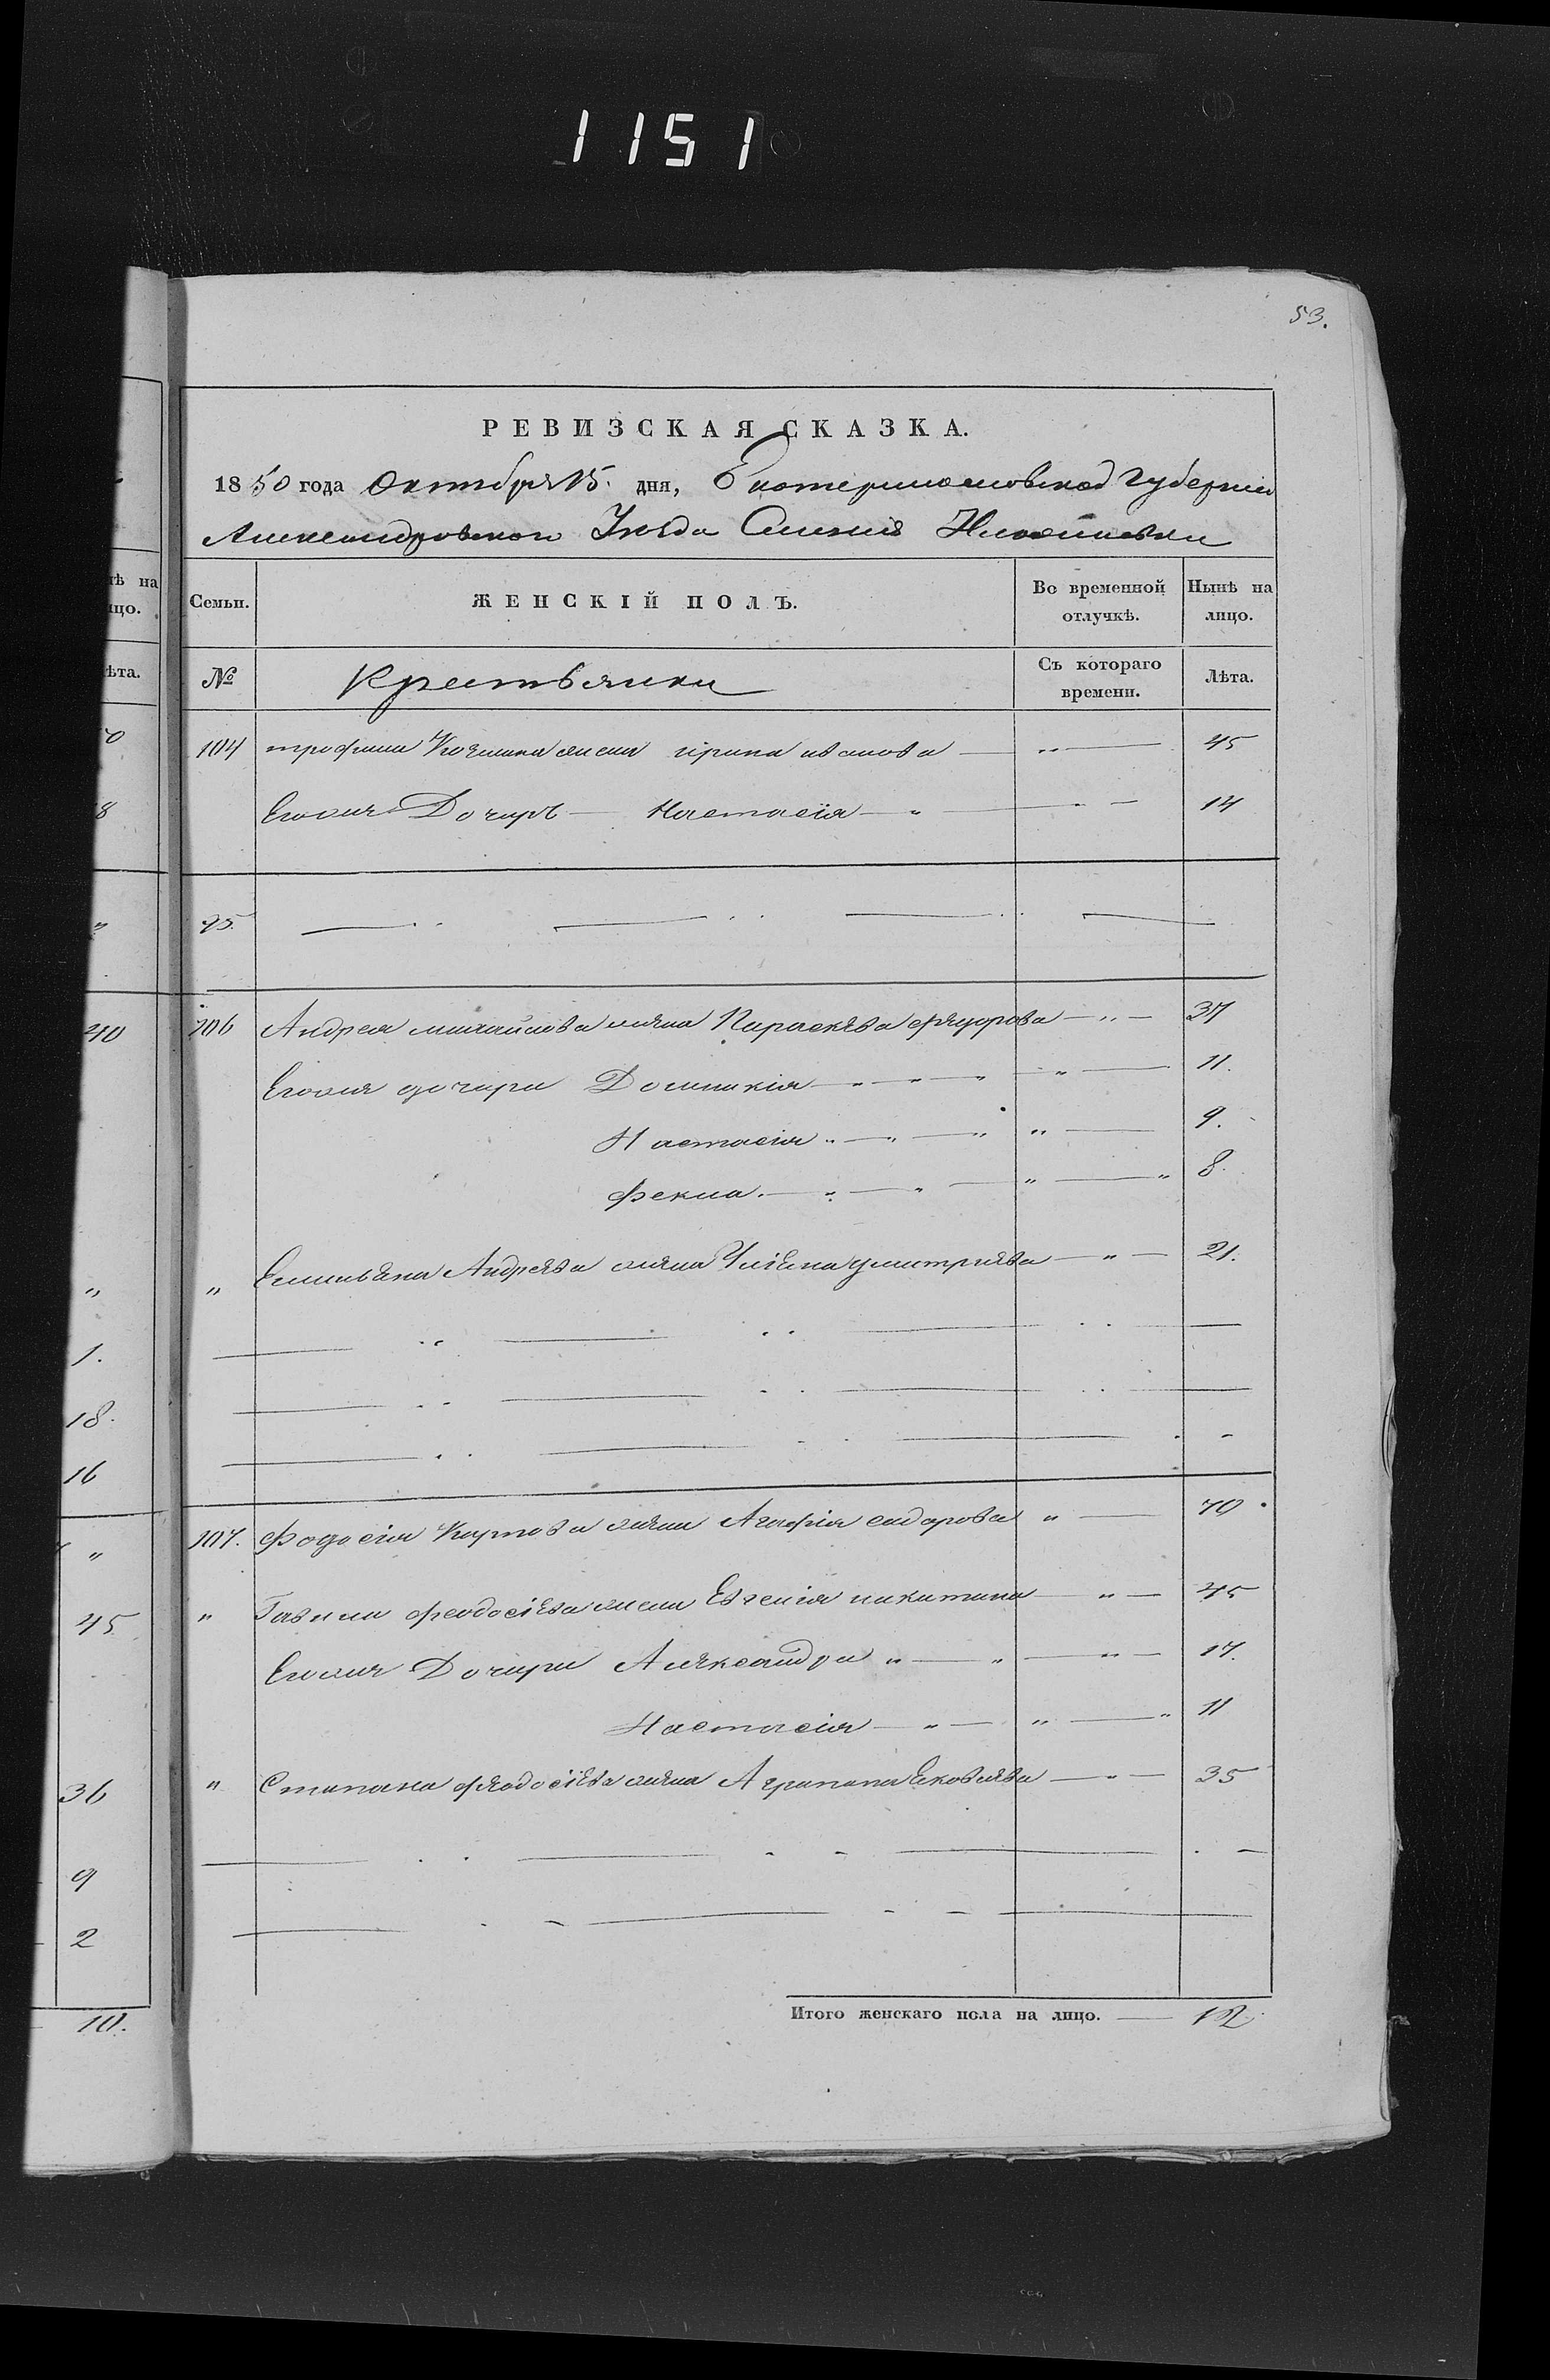 1151
53.
РЕВИЗСКАЯ СКАЗКА.
1850 года Октября 15. дня, Екатеринославской Губерніи
Александровского Уезда Сѣленія
Семьи. ЖЕНСКІЙ ПОЛЪ. Во временной отлучкѣ. Нынѣ на лицо.
№ Крестьянки Съ котораго времени. Лѣта.
104 трофима жена ірина иванова — „ — 45
Еговая Дочирь — Настасія — „ — 14
95.
106 Андрея михайлова жена Параскева фядорова — „ — 37
Еговая дочири Домникія — „ — „ — „ — 11.
Настасія „ — „ — „ „ — 9.
Фекла. — „ — „ — „ — „ 8.
„ Емильяна Андреева жена Уліяна дмитриева — „ — 21.
107. Фодосія Карпова жена Агафія сидорова „ — 70.
„ Гаврилы феодосіева жена Евгенія никитина — „ — 45
Еговая Дочири Александра „ — „ — „ — 17.
Настасія — „ — „ — „ 11
„ Стипана фяодосіева жена Агрипина Яковлева — „ — 35
Итого женскаго пола на лицо. — 12
тѣ на
ицо.
ѣта.
0
8
„
40
„
1.
18.
16
„
45
36
9
2
10.